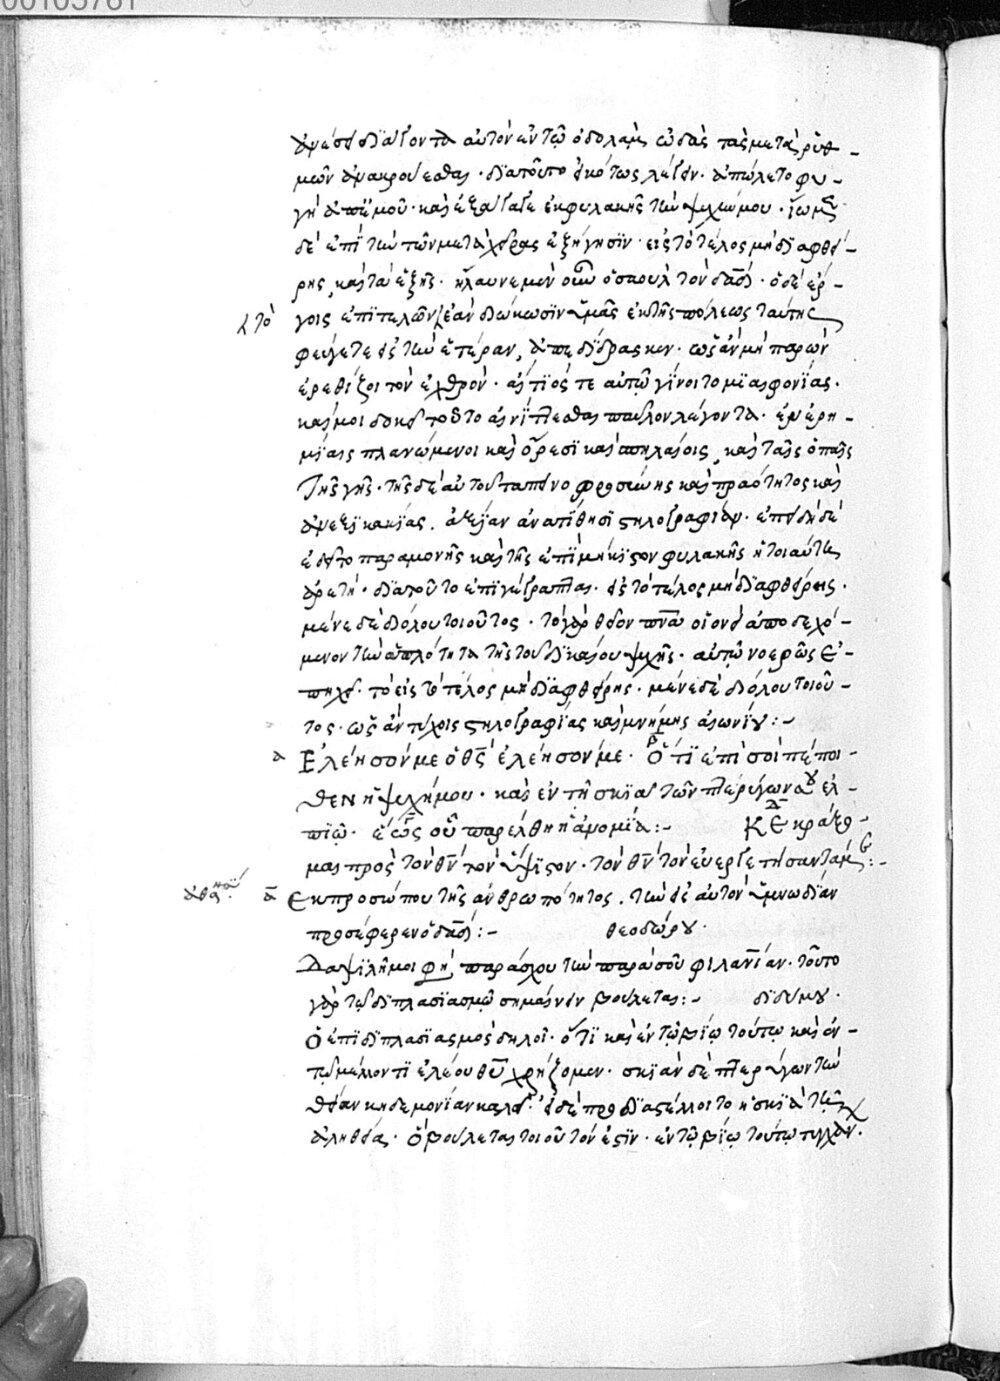 00103781
διάγοντα αὐτὸν ἐν τῷ ὀδολὰμ ὠδὰς τὰς μετὰ ῥυθ-
μῶν ἀνακρούεσθαι· διατοῦτο εἰκότως λέγει· ἀπώλετο φυ-
γὴ ἀπ' ἐμοῦ· καὶ ἐξάγαγε ἐκ φυλακῆς τὴν ψυχήν μου·
δὲ ἐπὶ τὴν τῶν μετὰ χεῖρας ἐξήγησιν· εἰς τὸ τέλος μὴ διαφθεί-
ρης, καὶ τὰ ἑξῆς· ἤλαυνε μὲν οὖν ὁ σαοὺλ τὸν δαδ· ὁ δὲ ἔρ-
τὸ γοις ἐπιτελῶν ἐὰν διώκωσιν ὑμᾶς ἐκ τῆς πόλεως ταύτης
φεύγετε εἰς τὴν ἑτέραν, ἀπεδίδρασκεν· ὡς ἂν μὴ παρὼν
ἐρεθίζοι τὸν ἐχθρὸν· αἴτιός τε αὐτῷ γίνοιτο μιαιφονίας·
καί μοι δοκεῖ τοῦτο αἰνίττεσθαι παῦλον λέγοντα· ἐν ἐρη-
μίαις πλανώμενοι καὶ ὄρεσι καὶ σπηλαίοις, καὶ ταῖς ὀπαῖς
τῆς γῆς· τῆς δὲ αὐτοῦ ταπεινοφροσύνης καὶ πραότητος καὶ
ἀνεξικακίας. ἀξίαν ἀνατίθησι στηλογραφίαν· ἐπειδὴ δὲ
ἐδεῖτο παραμονῆς καὶ τῆς ἐπιμήκιστον φυλακῆς ἡ τοιαύτη
ἀρετή· διατοῦτο ἐπιγέγραπται· εἰς τὸ τέλος μὴ διαφθείρης·
μένε δὲ διόλου τοιοῦτος· τὸ γὰρ θεῖον πνα οἱονεὶ ἀποδεχό-
μενον τὴν ἁπλότητα τῆς τοῦ δικαίου ψυχῆς· αὐτῷ νοερῶς ἐ-
πηχεῖ· τὸ εἰς τὸ τέλος μὴ διαφθείρης· μένε δὲ διόλου τοιοῦ-
τος· ὡς ἂν τύχοις στηλογραφίας καὶ μνήμης αἰωνίου:-
α Ἐλέησόν με ὁ θς ἐλέησόν με· β Ὅτι ἐπὶ σοὶ πέποι-
θεν ἡ ψυχή μου· καὶ ἐν τῇ σκιᾷ τῶν πτερύγων σου ἐλ-
πιῶ· γ ἕως οὗ παρέλθη ἡ ἀνομία:- δ Κεκράξο-
μαι πρὸς τὸν θν τὸν ὕψιστον· τὸν θν τὸν εὐεργετήσαντά με:-
ἀθανασ α Ἐκ προσώπου τῆς ἀνθρωπότητος. τὴν εἰς αὐτὸν ὑμνωδίαν
προσέφερεν ὁ δαδ:- θεοδώρου·
Δαψιλῆ μοι φησὶ παράσχου τὴν παρὰ σοῦ φιλανίαν· τοῦτο
γὰρ τῷ διπλασιασμῷ σημαίνειν βούλεται:- διδύμου·
Ὁ ἐπιδιπλασιασμὸς δηλοῖ· ὅτι καὶ ἐν τῷ βίῳ τούτῳ καὶ ἐν
τῷ μέλλοντι ἐλέου θυ χρήζομεν· σκιὰν δὲ πτερύγων τὴν
θείαν κηδεμονίαν καλεῖ· εἰ δὲ προδιαστέλλοιτο ἡ σκιὰ τῆς
ἀληθείας· ὃ βούλεται τοιοῦτόν ἐστιν· ἐν τῷ βίῳ τούτῳ τυγχάν.